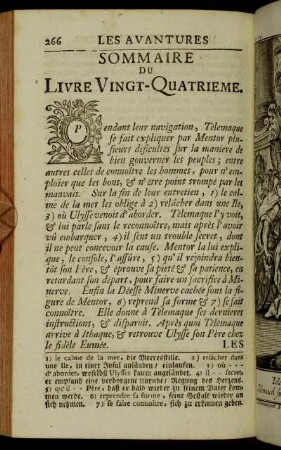 266 LES AVANTURES
SOMMAIRE
DU
LIVRE VINGT-QUATRIEME.
Pendant leur navigation, Télemaque
se fait expliquer par Mentor plu-
sieurs dificultés sur la maniere de
bien gouverner les peuples; entre
autres celles de connoître les hommes, pour n'em-
ploier que les bons, & n'etre point trompé par les
mauvais. Sur la fin de leur entretien, 1) le cal-
me de la mer les oblige à 2) relâcher dans une Ile,
3) où Ulysse venoit d'aborder. Télemaque l'y voit,
& lui parle sans le reconnoître, mais après l'avoir
vû embarquer, 4) il sent un trouble secret, dont
il ne peut concevoir la cause. Mentor la lui expli-
que, le console, l'assûre, 5) qu'il rejoindra bien-
tôt son Père, & éprouve sa pieté & sa patience, en
retardant son départ, pour faire un sacrifice à Mi-
nerve. Enfin la Déesse Minerve cachée sous la fi-
gure de Mentor, 6) reprend sa forme & 7) se fait
connoître. Elle donne à Télemaque ses dernieres
instructions, & disparoit. Après quoi Télemaque
arrive à Ithaque, & retrouve Ulysse son Père chez
le fidèle Eumée. LES
1) le calme de la mer, die Meeresstille. 2) relâcher dans
une Ile, in einer Insul anländen / einlaufen. 3) où ---
d'aborder, woselbst Ulysses kaum angeländet. 4) il -- secret
er empfand eine verborgene unruhe / Regung des Herzens.
5) qu'il -- Père, daß er bald wieder zu seinem Vater kom-
men werde. 6) reprendre sa forme, seine Gestalt wieder an
sich nehmen. 7) se faire connoître, sich zu erkennen geben.